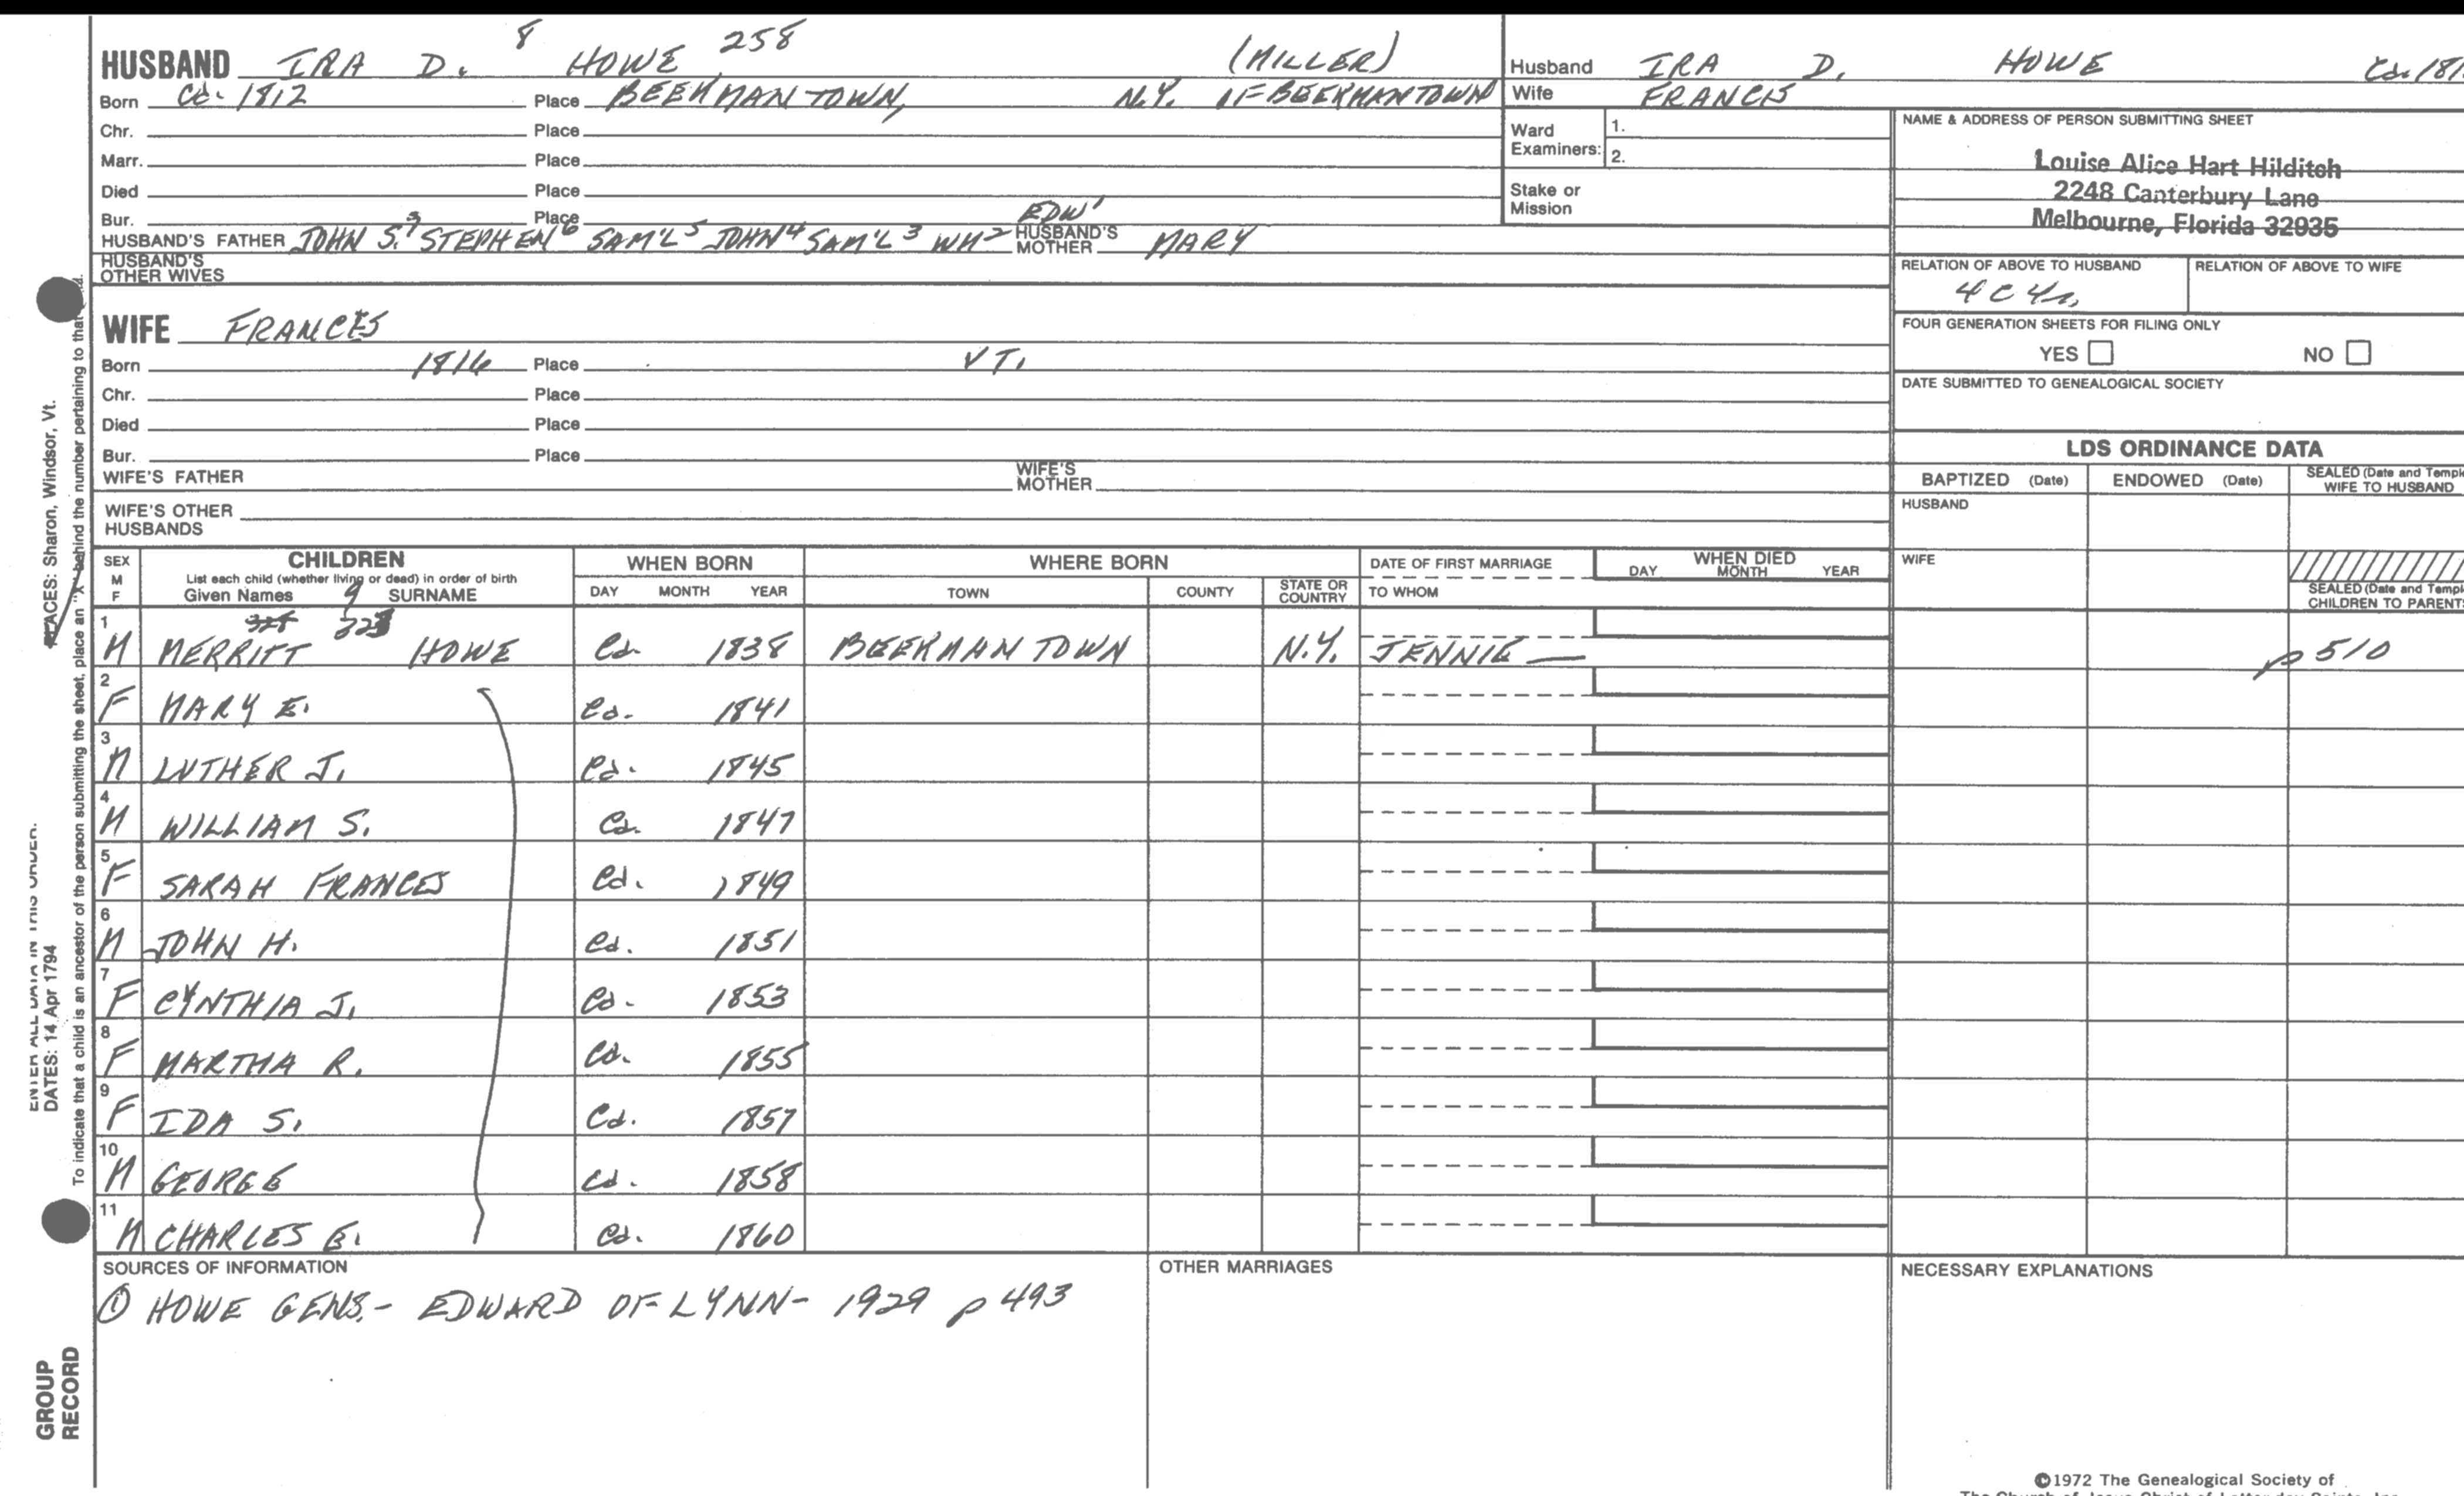 HUSBAND IRA D. 8 HOWE 258 (MILLER)
Born Cd. 1812 Place BEEKMANTOWN, N.Y. OF BEEKMANTOWN
Chr. Place
Marr. Place
Died Place
Bur. Place EDW1
HUSBAND'S FATHER JOHN S.7 STEPHEN6 SAM'L5 JOHN4 SAM'L3 WM2 HUSBAND'S MOTHER MARY
HUSBAND'S OTHER WIVES
WIFE FRANCES
Born 1816 Place VT.
Chr. Place
Died Place
Bur. Place
WIFE'S FATHER WIFE'S MOTHER
WIFE'S OTHER HUSBANDS
Husband IRA D. HOWE Cd. 181
Wife FRANCIS
Ward Examiners: 1.
2.
Stake or Mission
NAME & ADDRESS OF PERSON SUBMITTING SHEET
Louise Alice Hart Hilditch
2248 Canterbury Lane
Melbourne, Florida 32935
RELATION OF ABOVE TO HUSBAND RELATION OF ABOVE TO WIFE
4C4r.
FOUR GENERATION SHEETS FOR FILING ONLY
YES NO
DATE SUBMITTED TO GENEALOGICAL SOCIETY
LDS ORDINANCE DATA
BAPTIZED (Date) ENDOWED (Date) SEALED (Date and Temple
WIFE TO HUSBAND
HUSBAND
WIFE
SEALED (Date and Temple
CHILDREN TO PARENTS
SEX M F CHILDREN WHEN BORN WHERE BORN DATE OF FIRST MARRIAGE WHEN DIED
List each child (whether living or dead) in order of birth
Given Names 9 SURNAME DAY MONTH YEAR TOWN COUNTY STATE OR COUNTRY TO WHOM DAY MONTH YEAR
1 M MERRITT HOWE Cd. 1838 BEEKMANTOWN N.Y. JENNIE — p 510
2 F MARY E. Cd. 1841
3 M LUTHER J. Cd. 1845
4 M WILLIAM S. Cd. 1847
5 F SARAH FRANCES Cd. 1849
6 M JOHN H. Cd. 1851
7 F CYNTHIA J. Cd. 1853
8 F MARTHA R. Cd. 1855
9 F IDA S. Cd. 1857
10 M GEORGE Cd. 1858
11 M CHARLES E. Cd. 1860
SOURCES OF INFORMATION
① HOWE GENS.- EDWARD OF LYNN- 1929 p 493
OTHER MARRIAGES
NECESSARY EXPLANATIONS
©1972 The Genealogical Society of
The Church of Jesus Christ of Latter-day Saints, Inc.
PLACES: Sharon, Windsor, Vt.
To indicate that a child is an ancestor of the person submitting the sheet, place an "X" behind the number pertaining to that
ENTER ALL DATA IN THIS ORDER:
DATES: 14 Apr 1794
GROUP
RECORD